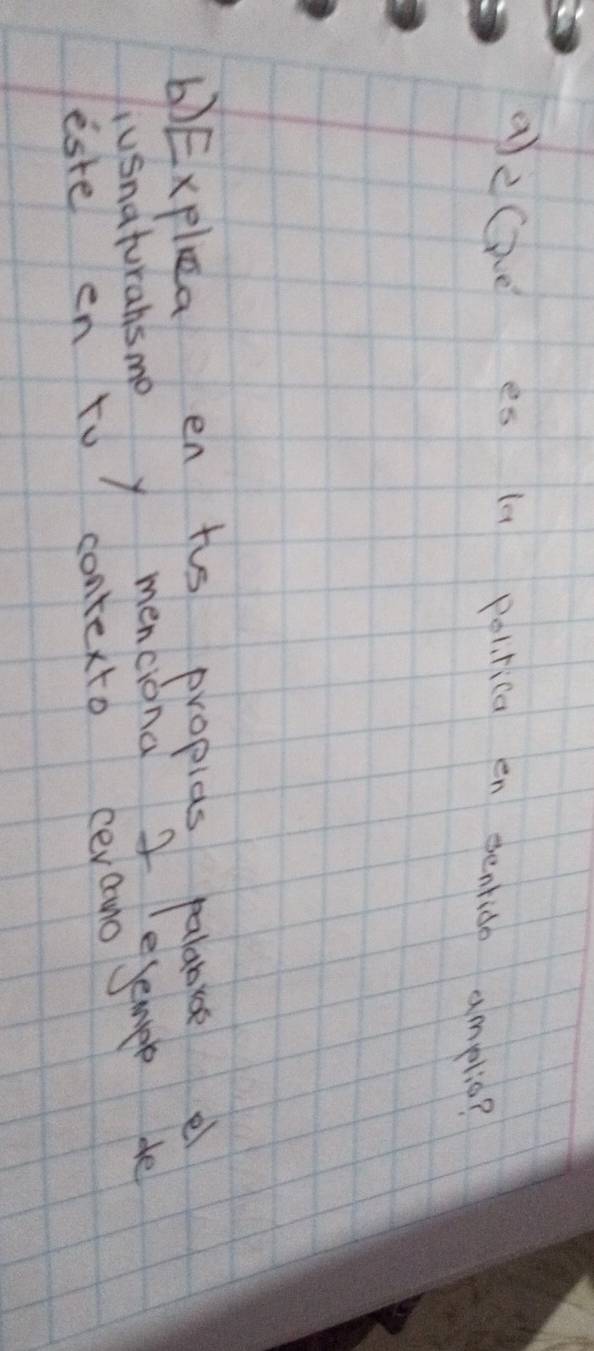 a) ¿Qué es la política en sentido amplio?
b) Explica en tus propias palabras el
iusnaturalismo y menciona 1 ejemplo de
éste en tu contexto cercano